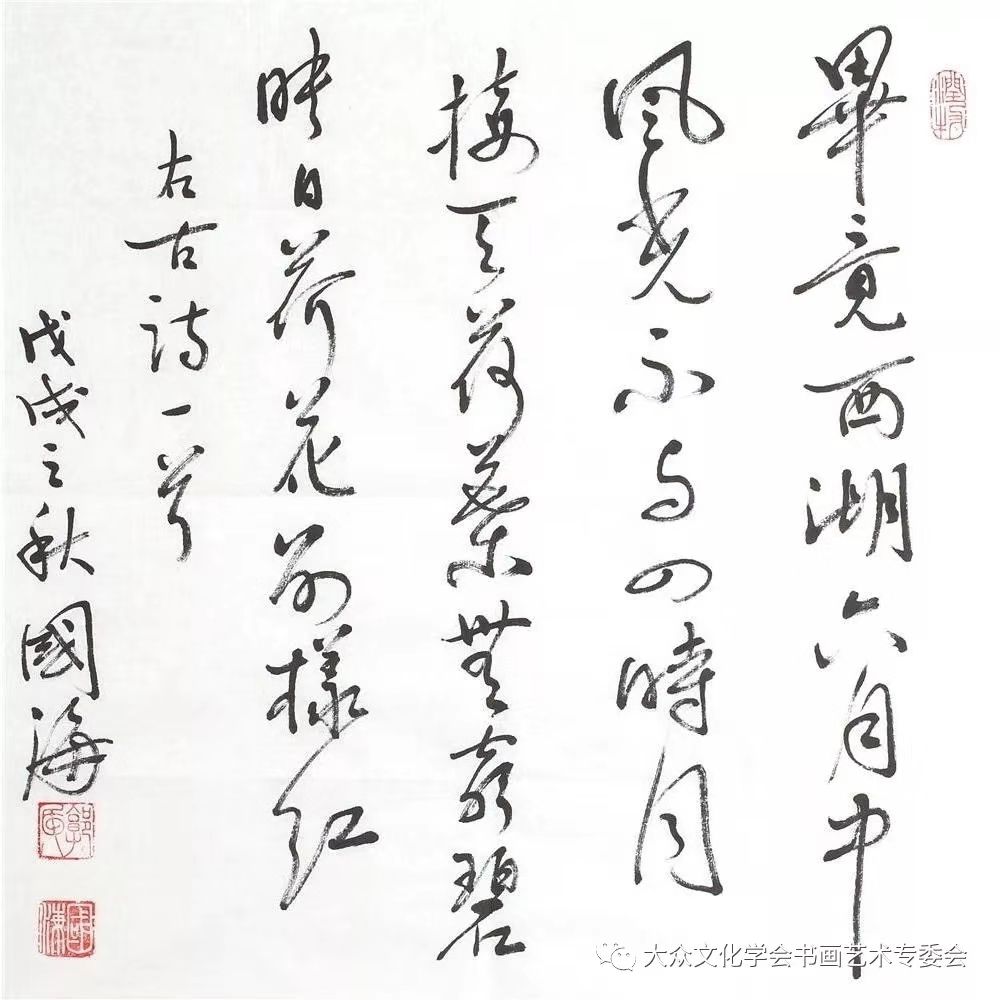 畢竟西湖六月中
風光不与四時同
接天荷葉無窮碧
映日荷花別樣紅
右古詩一首
戊戌之秋國海
大众文化学会书画艺术专委会